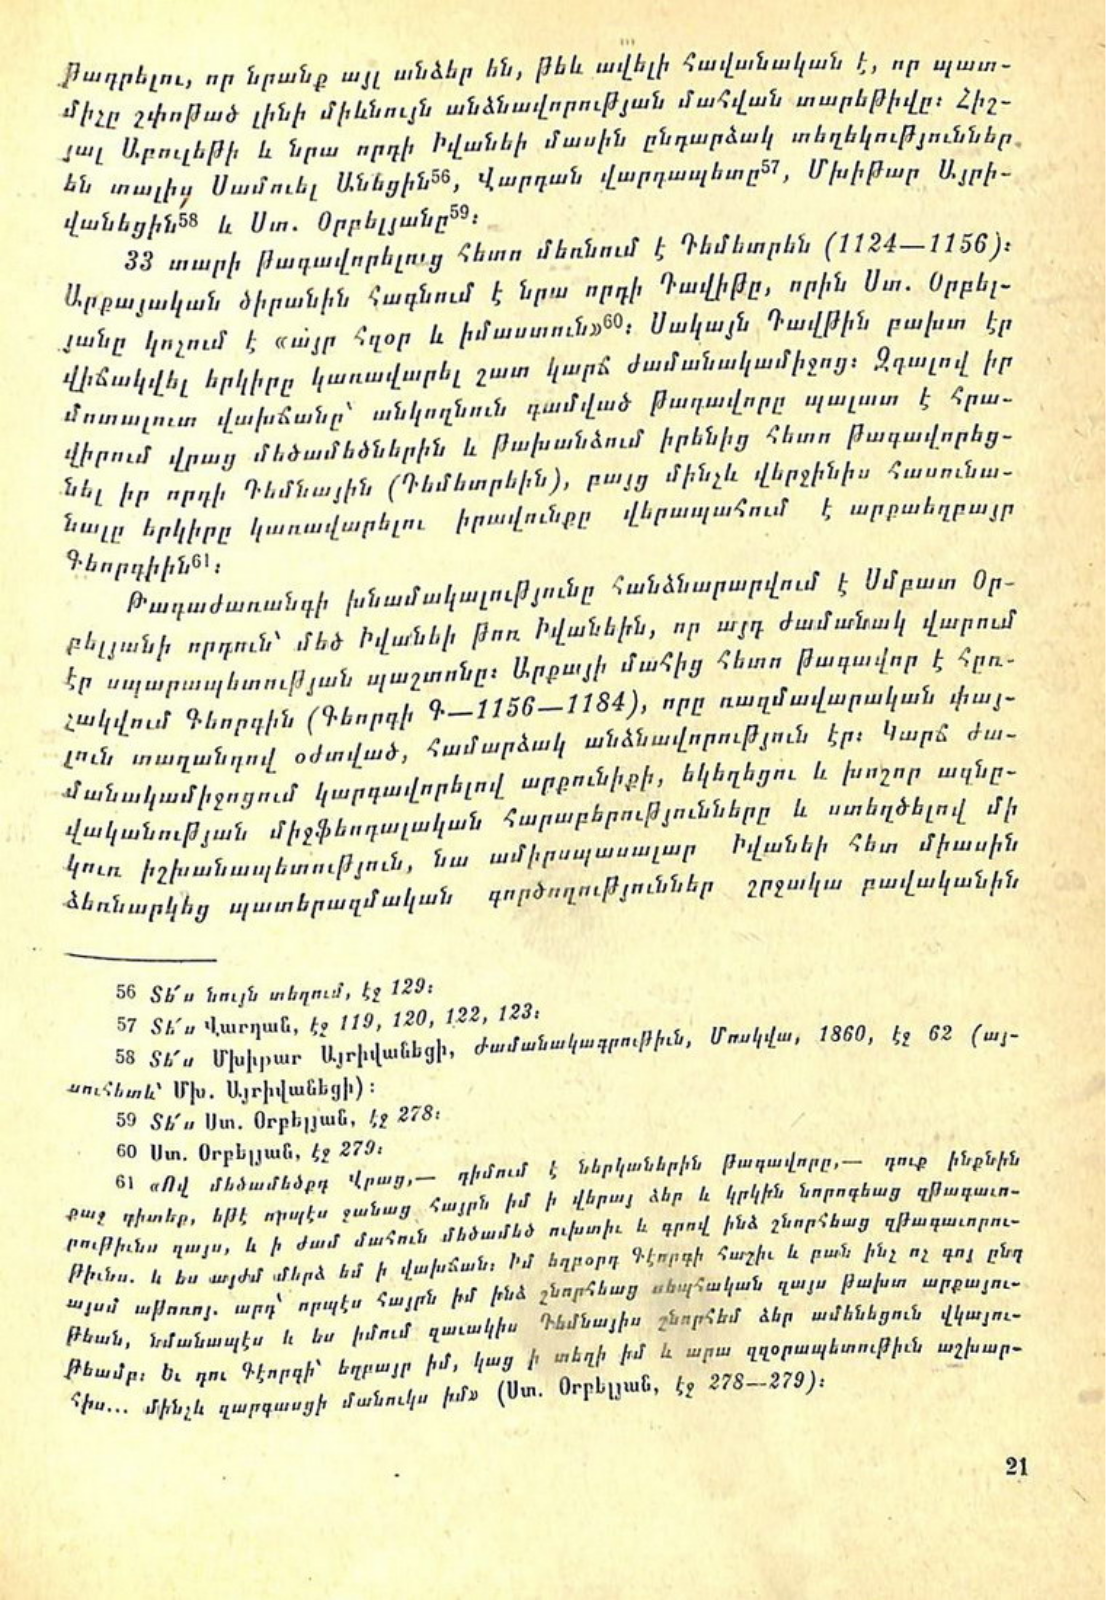 թադրելու, որ նրանք այլ անձեր են, թեև ավելի հավանական է, որ պատ-
միչը շփոթած լինի միևնույն անձնավորության մահվան տարեթիվը։ Հիշ-
յալ Աբուլեթի և նրա որդի Իվանեի մասին ընդարձակ տեղեկություններ
են տալիս Սամուել Անեցին56, Վարդան վարդապետը57, Մխիթար Այրի-
վանեցին58 և Ստ. Օրբելյանը59։
33 տարի թագավորելուց հետո մեռնում է Դեմետրեն (1124—1156)։
Արքայական ծիրանին հագնում է նրա որդի Դավիթը, որին Ստ. Օրբել-
յանը կոչում է «այր հզօր և իմաստուն»60։ Սակայն Դավթին բախտ էր
վիճակվել երկիրը կառավարել շատ կարճ ժամանակամիջոց։ Զգալով իր
մոտալուտ վախճանը՝ անկողնուն գամված թագավորը պալատ է հրա-
վիրում վրաց մեծամեծներին և թախանձում իրենից հետո թագավորեց-
նել իր որդի Դեմնային (Դեմետրեին), բայց մինչև վերջինիս հասունա-
նալը երկիրը կառավարելու իրավունքը վերապահում է արքաեղբայր
Գեորգիին61։
Թագաժառանգի խնամակալությունը հանձնարարվում է Սմբատ Օր-
բելյանի որդուն՝ մեծ Իվանեի թոռ Իվանեին, որ այդ ժամանակ վարում
էր սպարապետության պաշտոնը։ Արքայի մահից հետո թագավոր է հռ-
չակվում Գեորգին (Գեորգի Գ—1156—1184), որը ռազմավարական փայ-
լուն տաղանդով օժտված, համարձակ անձնավորություն էր։ Կարճ ժա-
մանակամիջոցում կարգավորելով արքունիքի, եկեղեցու և խոշոր ազնը-
վականության միջֆեոդալական հարաբերությունները և ստեղծելով մի
կուռ իշխանապետություն, նա ամիրսպասալար Իվանեի հետ միասին
ձեռնարկեց պատերազմական գործողություններ շրջակա բավականին
56 Տե՛ս նույն տեղում, էջ 129։
57 Տե՛ս Վարդան, էջ 119, 120, 122, 123։
58 Տե՛ս Մխիթար Այրիվանեցի, Ժամանակագրութիւն, Մոսկվա, 1860, էջ 62 (այ-
սուհետև՝ Մխ. Այրիվանեցի)։
59 Տե՛ս Ստ. Օրբելյան, էջ 278։
60 Ստ. Օրբելյան, էջ 279։
61 «Ով մեծամեծքդ Վրաց,— դիմում է ներկաներին թագավորը,— դուք ինքնին
քաջ գիտեք, եթէ որպէս ջանաց հայրն իմ ի վերայ ձեր և կրկին նորոգեաց զթագաւո-
րութիւնս զայս, և ի ժամ մահուն մեծամեծ ուխտիւ և գրով ինձ շնորհեաց զթագաւորու-
թիւնս. և ես այժմ մերձ եմ ի վախճան։ Իմ եղբօրդ Գէորգի հաշիւ և բան ինչ ոչ գոյ ընդ
այսմ աթոռոյ. արդ՝ որպէս հայրն իմ ինձ շնորհեաց սեպհական զայս թախտ արքայու-
թեան, նմանապէս և ես իմում զաւակիս Դեմնայիս շնորհեմ ձեր ամենեցուն վկայու-
թեամբ։ Եւ դու Գէորգի՝ եղբայր իմ, կաց ի տեղի իմ և արա զզօրապետութիւն աշխար-
հիս... մինչև զարգասցի մանուկս իմ» (Ստ. Օրբելյան, էջ 278—279)։
21